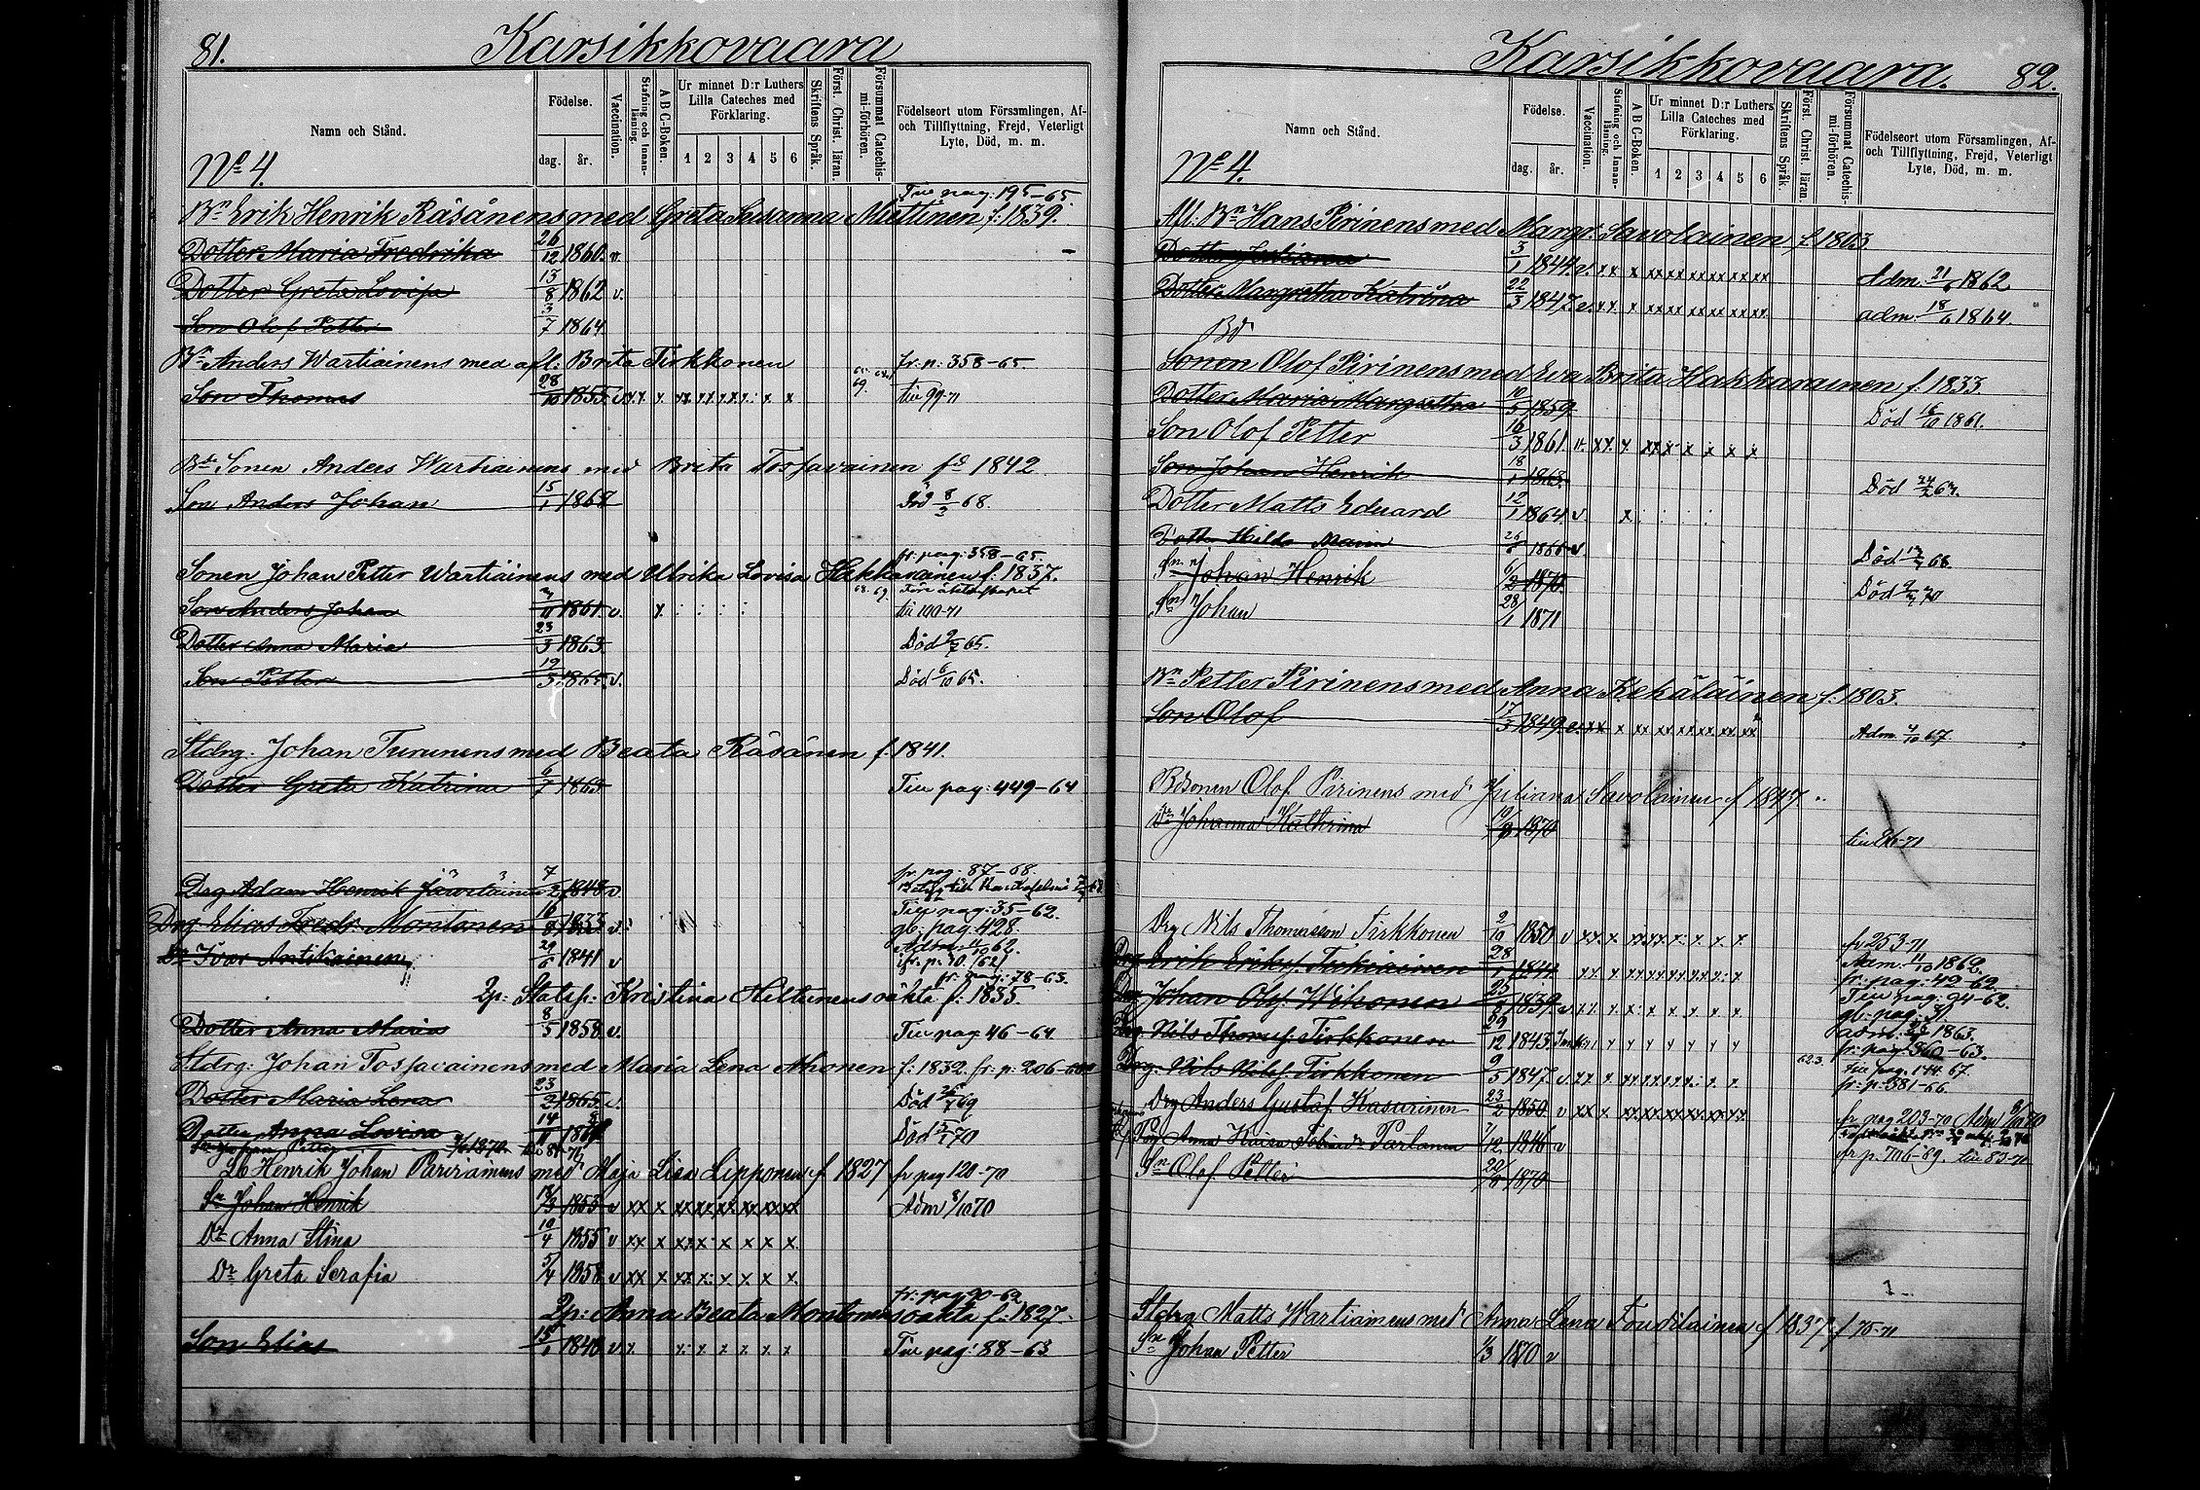 81.
Karsikkovaara
Namn och Stånd.
Födelse.
dag. år.
Vaccination.
Stafning och Innanläsning.
A B C-Boken.
Ur minnet D:r Luthers Lilla Cateches med Förklaring.
1 2 3 4 5 6
Skriftens Språk.
Först. Christ. läran.
Försummat Catechismi-förhören.
Födelseort utom Församlingen, Af- och Tillflyttning, Frejd, Veterligt Lyte, Död, m. m.
No 4.
Till pag: 195-65.
Bn Erik Henrik Räsänens med Greta Susanna Miettinen f: 1839.
Dotter Maria Fredrika 26/12 1860. v.
Dotter Greta Lovisa 13/8 1862 v.
Son Olof Petter 3/7 1864
Bn Anders Wartiainens med afl: Brita Tirkkonen fr. p: 358-65.
Son Thomas 28/10 1855 till 99-71
Bd Sonen Anders Wartiainens med Brita Tossavainen fd 1842
Son Anders Johan 15/1 1868 Död 8/2 68.
fr. pag: 358-65.
Sonen Johan Petter Wartiainens med Ulrika Lovisa Hakkarainen f: 1837.
Son Anders Johan 1861 v. till 100-71
Dotter Anna Maria 23/3 1863 Död 9/7 65.
Son Petter 19/3 1865. v. Död 6/10 65.
Stdrg. Johan Turunens med Beata Räsänen f. 1841.
Dotter Greta Katrina 6/7 1863 Till pag: 449-64
fr. pag: 87-68.
Drg Adam Henrik 7/2 1848 v.
Till pag: 35-62.
Drg Elias Fredr. Montonen 16/9 1833 v. gl. pag 428.
Dr Ivar Antikainen 29/6 1841 v
fr: pag: 78-63.
Qp: Statsf: Kristina Hiltunens oäkta f: 1835.
Dotter Anna Maria 8/5 1858 v. Till pag 46-64.
Stdrg: Johan Tossavainens med Maria Lena Ahonen f: 1832. fr. p: 206-
Dotter Maria Lena 23/2 1865 v. Död 26/4 69
Dotter Anna Lovisa 14/11 Död 70
Henrik Johan Parviainens med Maja Lisa Lipponen f 1827 fr pag 120-70
Sn Johan Henrik 1853 v xx x xx xx xx xx xx xx Adm 8/10 70
Dr Anna Stina 19/4 1855 v xx x xx x x x x x
Dr Greta Serafia 5/4 1858 v xx x xx x x x x x.
fr: pag 90-62
Qp: Anna Beata Montonens oäkta f: 1827.
Son Elias 15/1 1848 Till pag: 88-63
Karsikkovaara. 82.
Namn och Stånd.
Födelse.
dag. år.
Vaccination.
Stafning och Innanläsning.
A B C-Boken.
Ur minnet D:r Luthers Lilla Cateches med Förklaring.
1 2 3 4 5 6
Skriftens Språk.
Först. Christ. läran.
Försummat Catechismi-förhören.
Födelseort utom Församlingen, Af- och Tillflyttning, Frejd, Veterligt Lyte, Död, m. m.
No 4.
Afl: Bn Hans Pirinens med Margr: Savolainen f. 1803.
Dotter Juliana 3/1 1844. v. xx x xx xx xx xx xx xx Adm. 21/6 1862
Dotter Margretha Katrina 22/3 1847. v. xx x xx xx xx xx xx xx adm. 18/6 1864.
Bd
Sonen Olof Pirinens med Eva Brita Hakkarainen f. 1833.
Dotter Maria Margretha 10/5 1859. Död 16/10 1861.
Son Olof Petter 16/3 1861 v.
Son Johan Henrik 18/1 1863. Död 24/2 67.
Dotter Matts Eduard 12/1 1864 v.
Dotter Hilda Maria 1866 v Död 68.
Sn Johan Henrik 6/2 1870 Död 70
Sn Johan 28/1 1871
Bn Petter Pirinens med Anna Kekäläinen f. 1803.
Son Olof 17/3 1849 Adm. 4/10 67.
Bdsonen Olof Pirinens med Juliana Savolainen f 1847
Dr Johanna Kathrina 1870 till 86-71
Drg Nils Thomasson Tirkkonen 2/10 1850 v fr 253-71
Drg Erik Eriks. Tukiainen 28/1 1844 Adm. 11/10 1862.
fr. pag: 42-62.
Drg Johan Olof Wihonen 25/8 1839 Till pag: 94-62.
Drg Nils Thoms. Tirkkonen 29/12 1843 adm. 1863.
fr: pag: 360-63.
Drg: Nils Nils. Tirkkonen 9/5 1847 Till pag. 144-67.
fr: p: 381-66.
Drg Anders Gustaf Kasurinen 23/2 1850 v fr pag 203-70 Adm 8/10 70
Pig Anna Kaisa Tobiasd:r Parlanen /12 1846 v fr p. 706-69. till 83-70
Sn Olof Petter 1870
Stdrg Matts Wartiainens med Anna Lena Foudilainen f 1837 f 75-71
Sn Johan Petter 1/3 1870 v